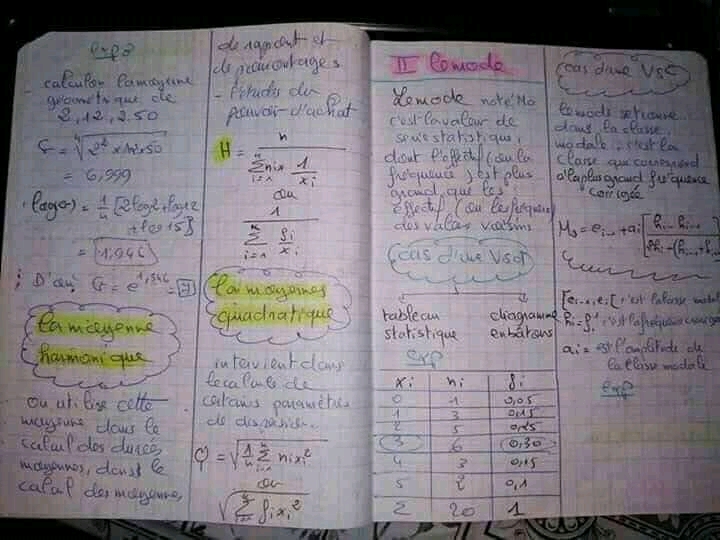 exp
- calculer la moyenne
géometrique de
2, 12, 2.50
G = ⁴√2² × 12 × 50
= 6,999
log G = 1/4 [2log2 + log12
= 1,946
D'où G = e^1,946 = 7
la moyenne
harmonique
on utilise cette
moyenne dans le
calcul des durés
moyennes, dans le
calcul des moyennes
de rapport et
de pourcentages
- études du
pouvoir d'achat
H = n / Σ ni × 1/xi
ou
1 / Σ fi/xi
la moyennes
quadratique
intervient dans
le calculs de
certains paramètres
de dispersion.
Q = √1/n Σ ni xi²
ou
√Σ fi xi²
II le mode
Le mode noté Mo
c'est la valeur de
série statistique,
dont l'effectif (ou la
fréquence) est plus
grand, que les
effectif (ou les fréquences
des valeurs voisins
cas d'une VSD
tableau diagramme
statistique en bâtons
exp
xi ni fi
0 1 0,05
1 3 0,15
2 5 0,25
3 6 0,30
4 3 0,15
5 2 0,1
Σ 20 1
cas d'une VSC
le mode se trouve
dans la classe
modale, c'est la
classe qui correspond
à la plus grand fréquence
corrigée
[ei-1, ei[ c'est la classe modale
c'est la fréquence corrigée
ai = est l'amplitude de
la classe modale
exp